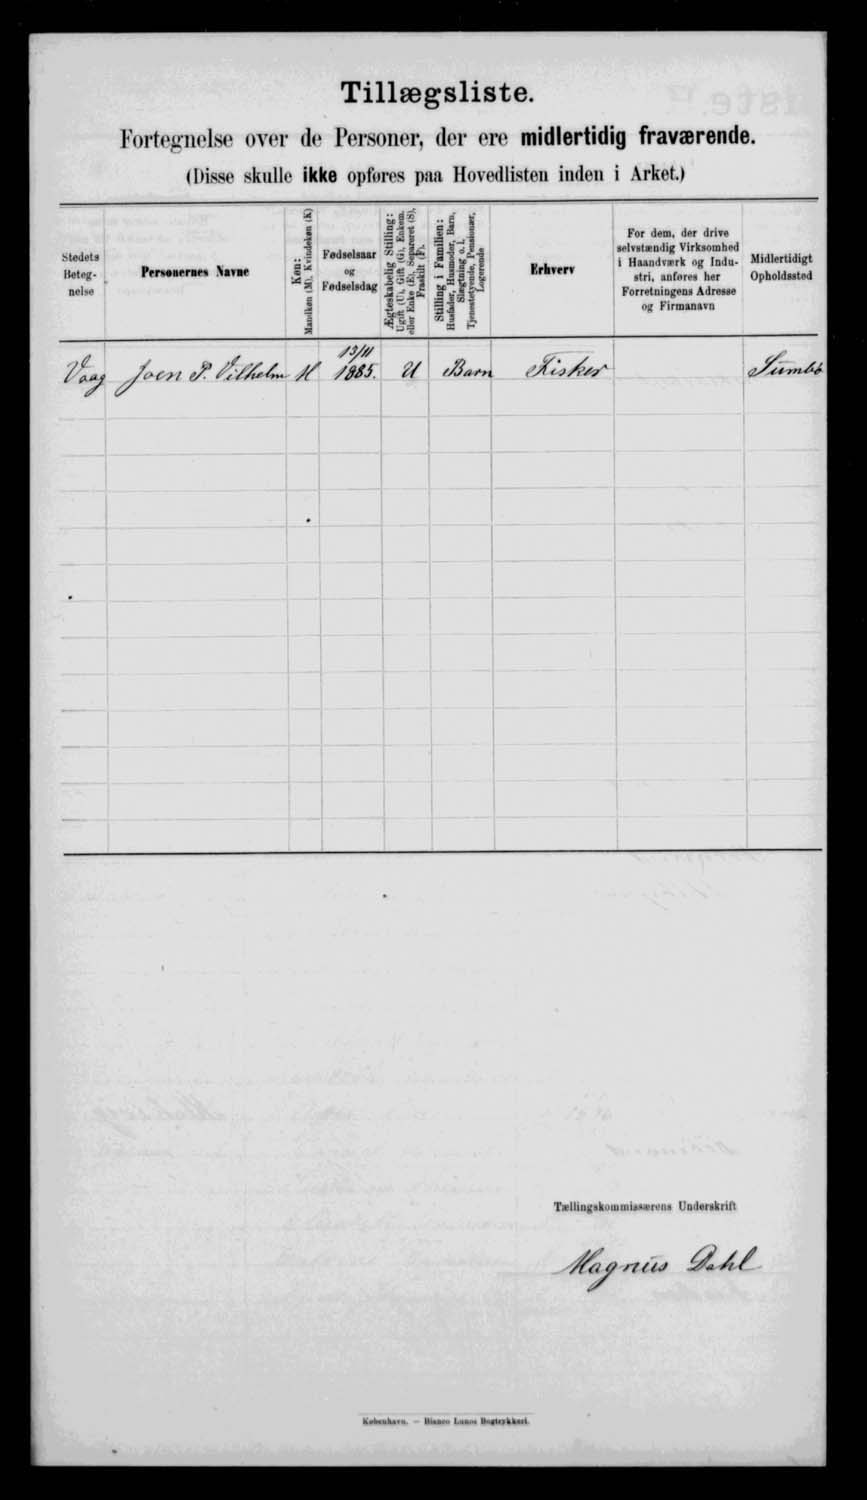 Tillægsliste.
Fortegnelse over de Personer, der ere midlertidig fraværende.
(Disse skulle ikke opføres paa Hovedlisten inden i Arket.)
Stedets
Beteg-
nelse
Personernes Navne
Køn:
Mandkøn (M), Kvindekøn (K)
Fødselsaar
og
Fødselsdag
Ægteskabelig Stilling:
Ugift (U), Gift (G), Enkem.
eller Enke (E), Separeret (S),
Fraskilt (F).
Stilling i Familien:
Husfader, Husmoder, Barn,
Slægtning o. l.
Tjenestetyende, Pensionær,
Logerende
Erhverv
For dem, der drive
selvstændig Virksomhed
i Haandværk og Indu-
stri, anføres her
Forretningens Adresse
og Firmanavn
Midlertidigt
Opholdssted
Vaag Joen P. Vilhelm M 13/11 1885. U Barn Fisker Sumbö
Tællingskommissærens Underskrift
Magnus Dahl
København. — Bianco Lunos Bogtrykkeri.